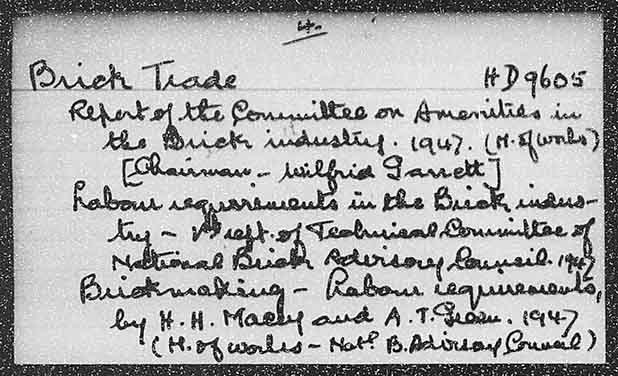 Brick Trade HD9605
Report of the Committee on Amenities in
the Brick industry. 1947. (M. of works)
[Chairman - Wilfrid Garrett]
Labour requirements in the Brick indus-
try - 1st rept. of Technical Committee of
National Brick Advisory Council. 1947
Brickmaking - Labour requirements,
by H. H. Macey and A. T. Green. 1947
(M. of works - Natl. B. Advisory Council)